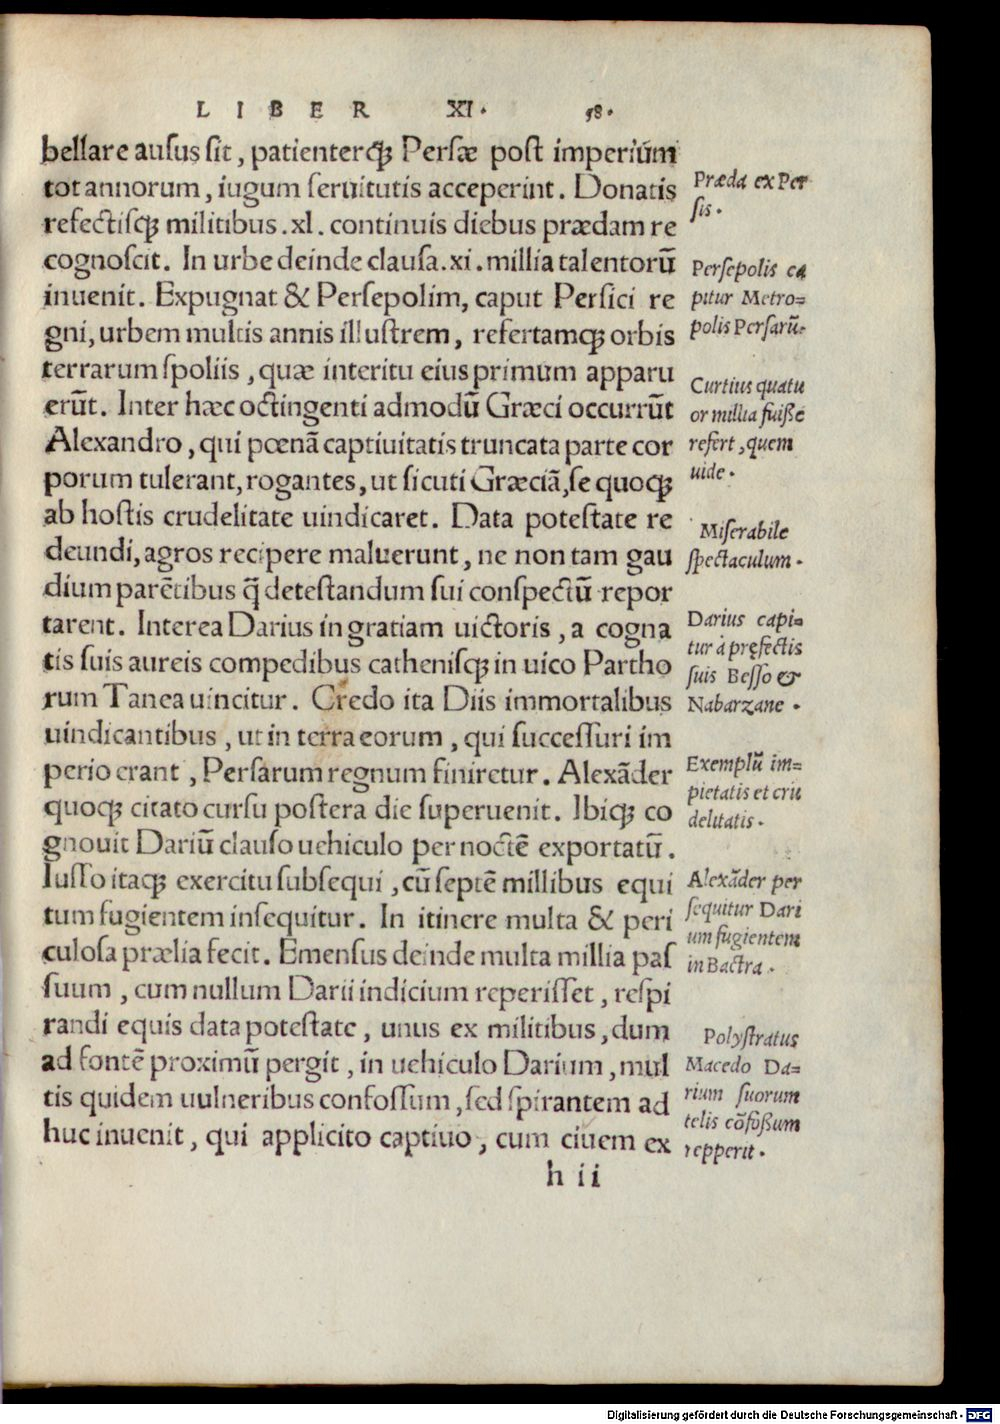 LIBER XI. 58.
bellare ausus sit, patienterq́ꝫ Persæ post imperiũm
tot annorum, iugum seruitutis acceperint. Donatis
refectisq́ꝫ militibus .xl. continuis diebus prædam re
cognoscit. In urbe deinde clausa .xi. millia talentorũ
inuenit. Expugnat & Persepolim, caput Persici re
gni, urbem multis annis illustrem, refertamq́ꝫ orbis
terrarum spoliis, quæ interitu eius primum apparu
erũt. Inter hæc octingenti admodũ Græci occurrũt
Alexandro, qui pœnã captiuitatis truncata parte cor
porum tulerant, rogantes, ut sicuti Græciã, se quoq́ꝫ
ab hostis crudelitate uindicaret. Data potestate re
deundi, agros recipere maluerunt, ne non tam gau
dium parẽtibus q̃ detestandum sui conspectũ repor
tarent. Interea Darius in gratiam uictoris, a cogna
tis suis aureis compedibus cathenisq́ꝫ in uico Partho
rum Tanea uincitur. Credo ita Diis immortalibus
uindicantibus, ut in terra eorum, qui successuri im
perio erant, Persarum regnum finiretur. Alexãder
quoq́ꝫ citato cursu postera die superuenit. Ibiq́ꝫ co
gnouit Dariũ clauso uehiculo per noctẽ exportatũ.
Iusso itaq́ꝫ exercitu subsequi, cũ septẽ millibus equi
tum fugientem insequitur. In itinere multa & peri
culosa prælia fecit. Emensus deinde multa millia pas
suum, cum nullum Darii indicium reperisset, respi
randi equis data potestate, unus ex militibus, dum
ad fontẽ proximũ pergit, in uehiculo Darium, mul
tis quidem uulneribus confossum, sed spirantem ad
huc inuenit, qui applicito captiuo, cum ciuem ex
h ii
Præda ex Per
sis.
Persepolis ca
pitur Metro=
polis Persarũ.
Curtius quatu
or millia fuisse
refert, quem
uide.
Miserabile
spectaculum.
Darius capi=
tur à pręfectis
suis Besso &
Nabarzane.
Exemplũ im=
pietatis et cru
delitatis.
Alexãder per
sequitur Dari
um fugientem
in Bactra.
Polystratus
Macedo Da=
rium suorum
telis cõfossum
repperit.
Digitalisierung gefördert durch die Deutsche Forschungsgemeinschaft - DFG